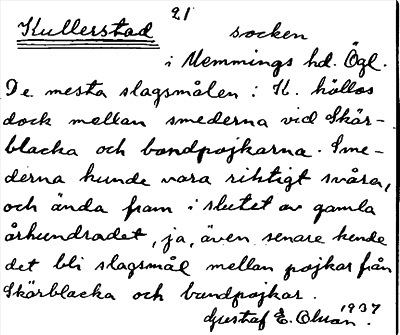 21
Kullerstad socken
i Memmings hd. Ögl.
De mesta slagsmålen i K. höllos
dock mellan smederna vid Skär-
blacka och bondpojkarna. Sme-
derna kunde vara riktigt svåra,
och ända fram i slutet av gamla
århundradet, ja, även senare kunde
det bli slagsmål mellan pojkar från
Skärblacka och bondpojkar.
Gustaf E. Olsson. 1937